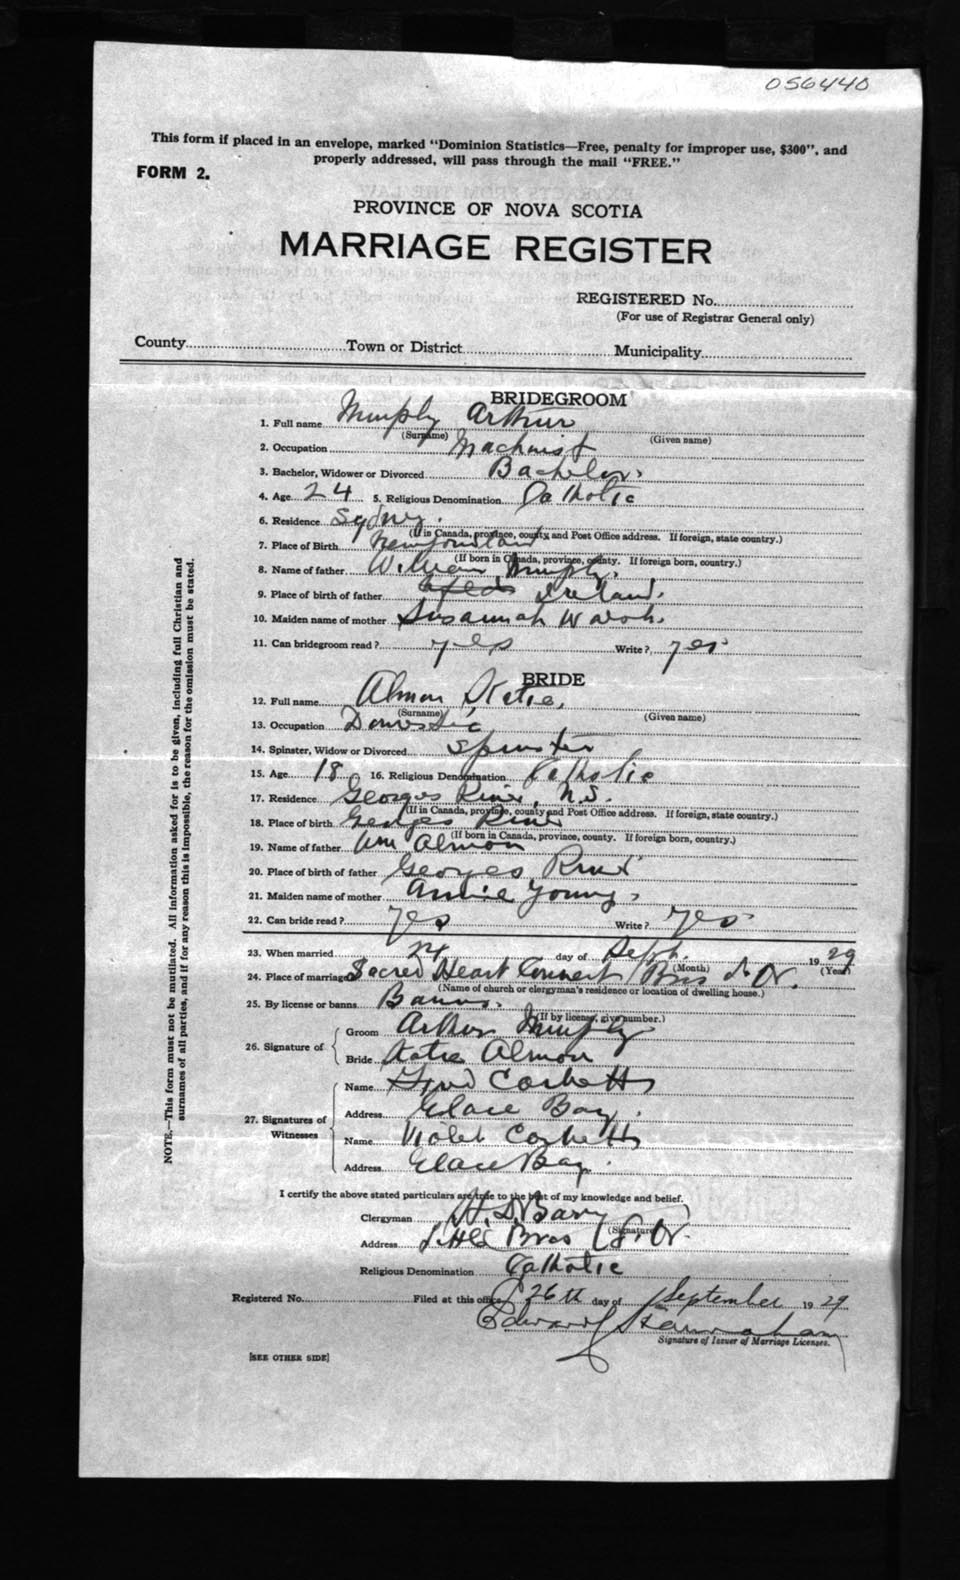 056440
This form if placed in an envelope, marked "Dominion Statistics—Free, penalty for improper use, $300", and
properly addressed, will pass through the mail "FREE."
FORM 2.
PROVINCE OF NOVA SCOTIA
MARRIAGE REGISTER
REGISTERED No.
(For use of Registrar General only)
County Town or District Municipality
BRIDEGROOM
1. Full name Murphy Arthur
(Surname) (Given name)
2. Occupation Machinist
3. Bachelor, Widower or Divorced Bachelor.
4. Age 24 5. Religious Denomination Catholic
6. Residence Sydney.
(If in Canada, province, county and Post Office address. If foreign, state country.)
7. Place of Birth Newfoundland
(If born in Canada, province, county. If foreign born, country.)
8. Name of father William Murphy.
9. Place of birth of father Ireland.
10. Maiden name of mother Susannah Walsh.
11. Can bridegroom read? yes Write? yes
BRIDE
12. Full name Almon Katie,
(Surname) (Given name)
13. Occupation Domestic
14. Spinster, Widow or Divorced Spinster
15. Age 18 16. Religious Denomination Catholic
17. Residence Georges River, N.S.
(If in Canada, province, county and Post Office address. If foreign, state country.)
18. Place of birth Georges River
(If born in Canada, province, county. If foreign born, country.)
19. Name of father Wm Almon
20. Place of birth of father Georges River
21. Maiden name of mother Annie Young.
22. Can bride read? yes Write? yes
23. When married day of Sept. 1929
(Month) (Year)
24. Place of marriage Sacred Heart Convent Bras d'Or.
(Name of church or clergyman's residence or location of dwelling house.)
25. By license or banns Banns.
(If by license, give number.)
26. Signature of
Groom Arthur Murphy
Bride Katie Almon
27. Signatures of Witnesses
Name Corbett
Address Glace Bay.
Name Violet Corbett
Address Glace Bay.
I certify the above stated particulars are true to the best of my knowledge and belief.
Clergyman Barry
(Signature)
Address Little Bras d'Or.
Religious Denomination Catholic
Registered No. Filed at this office 26th day of September 1929
Edward
Signature of Issuer of Marriage Licenses.
[SEE OTHER SIDE]
NOTE.—This form must not be mutilated. All information asked for is to be given, including full Christian and
surnames of all parties, and if for any reason this is impossible, the reason for the omission must be stated.